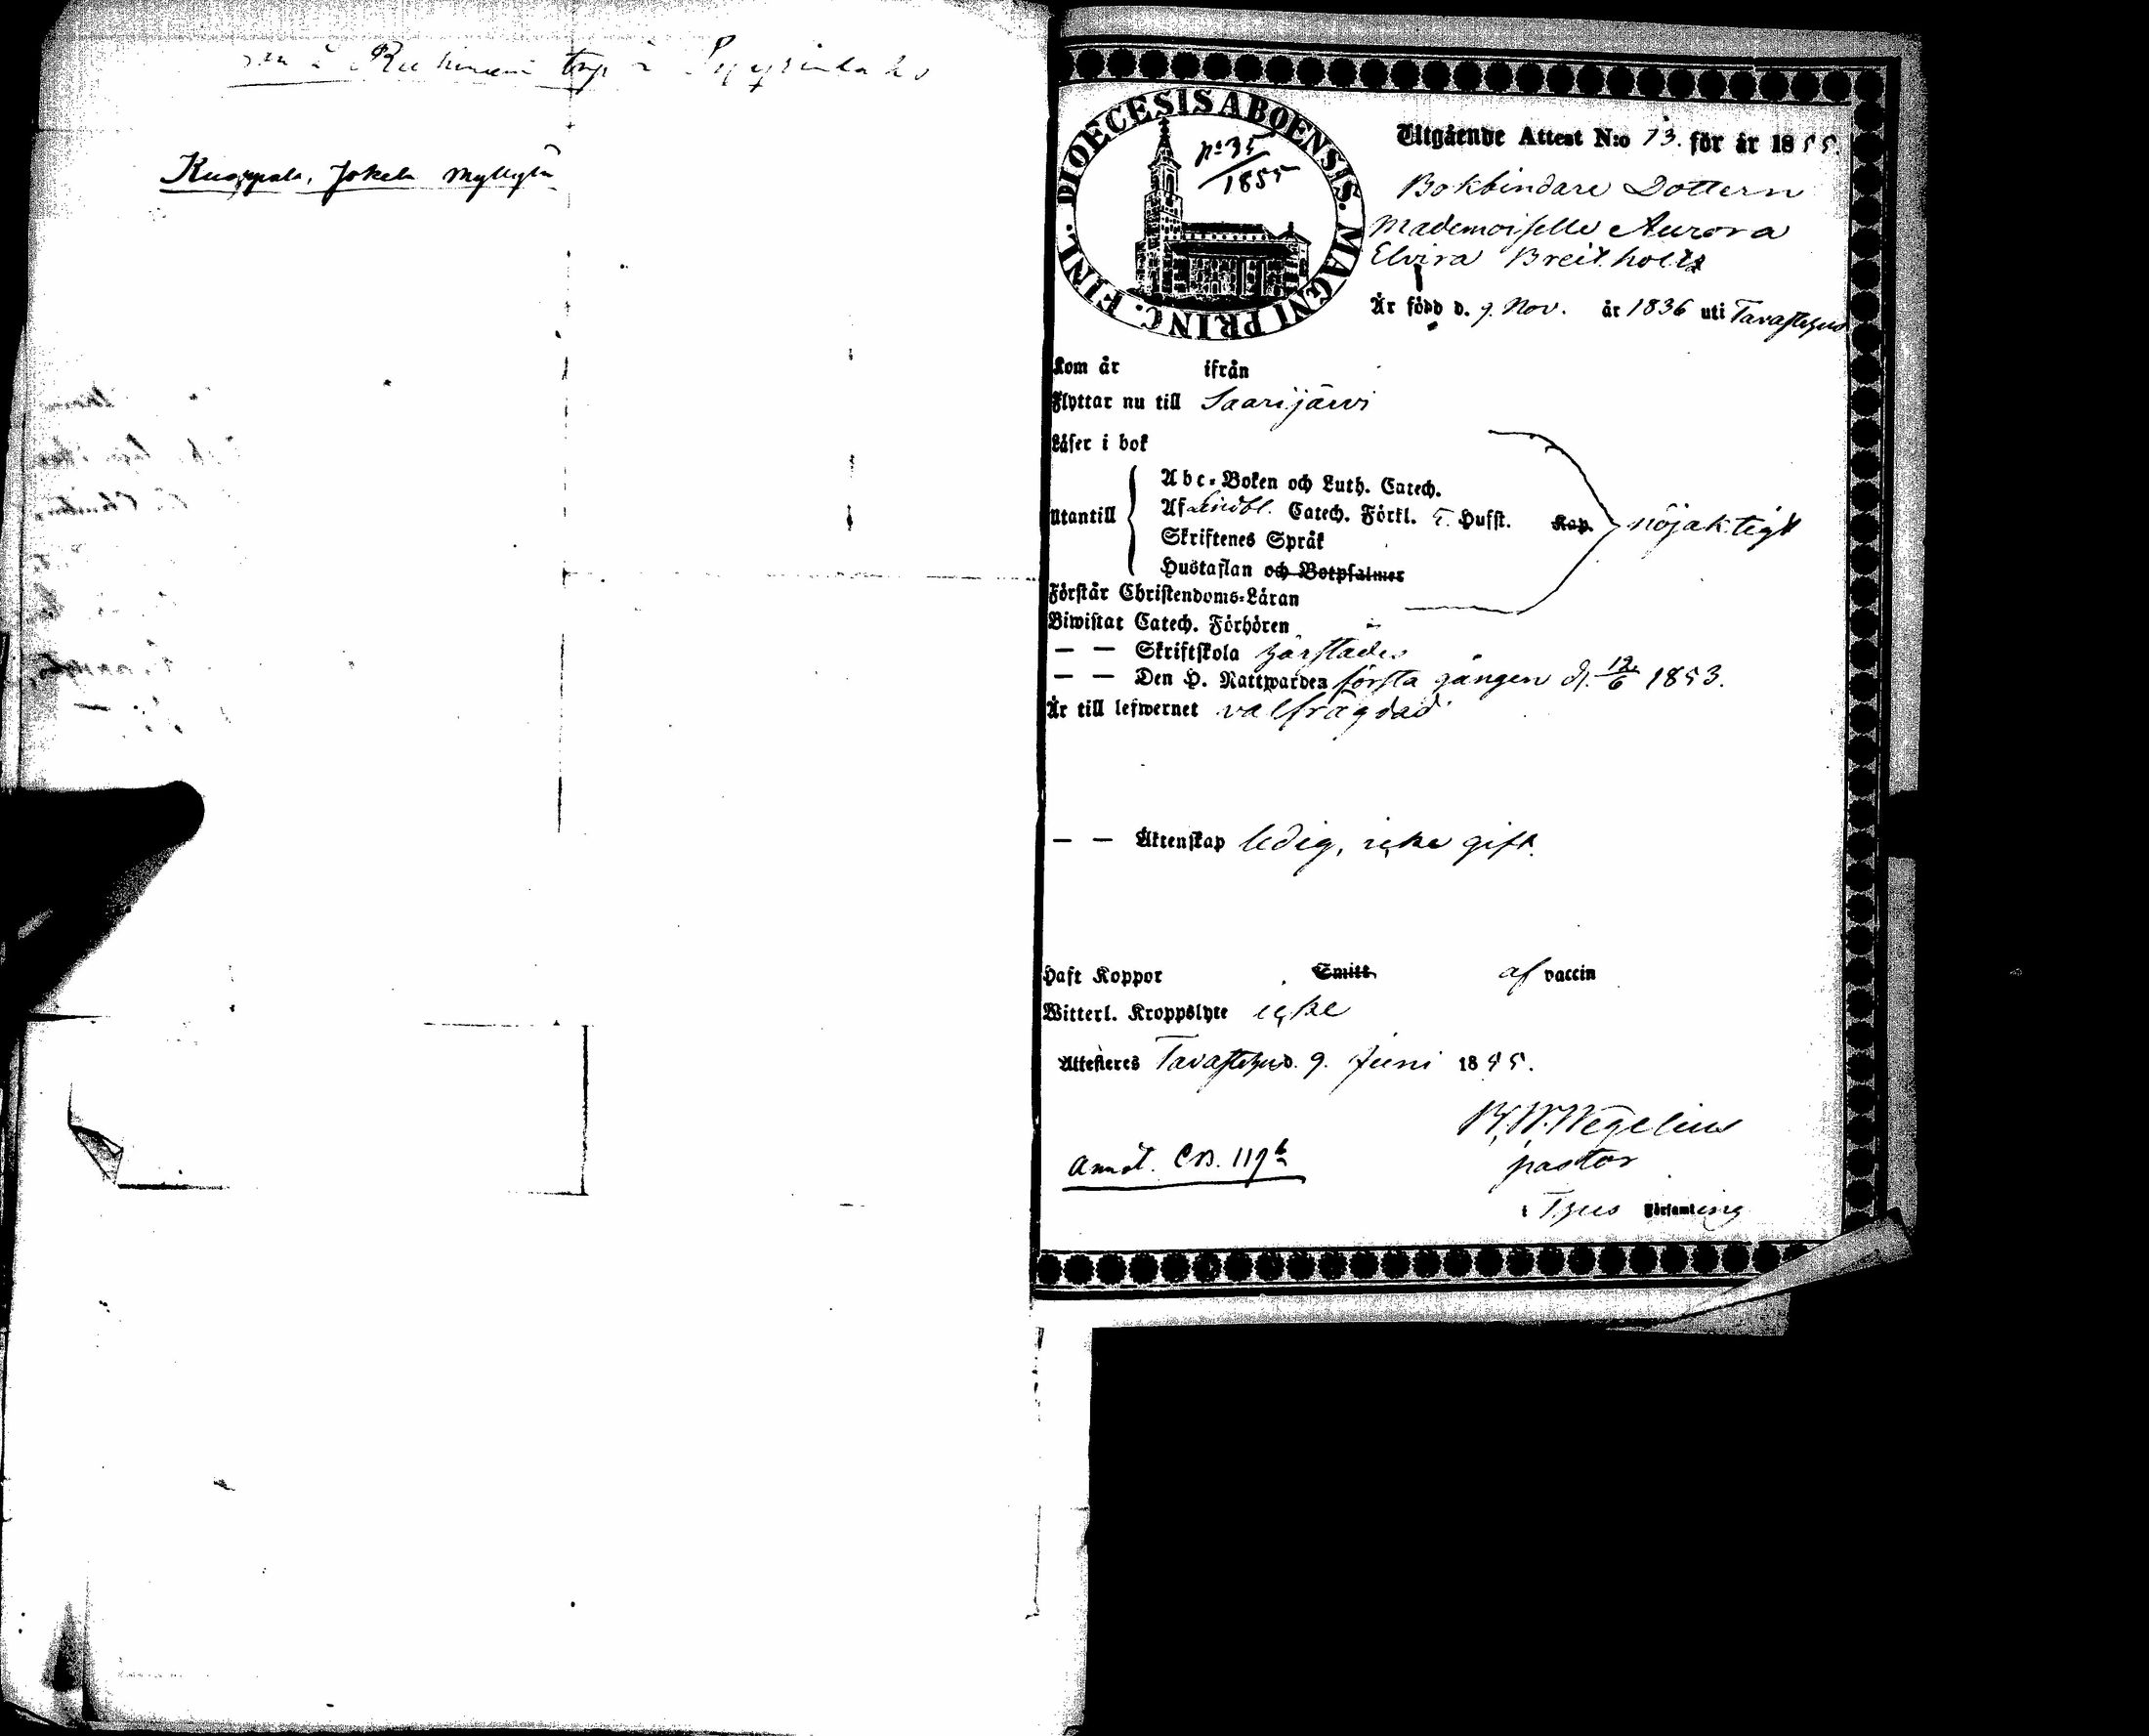 Knappala, Jokela Myllylä
DIOECESIS ABOENSIS. MAGNI PRINC. FINL.
No 35
1855
Utgående Attest N:o 13. för år 1855.
Bokbindare Dottern
Mademoiselle Aurora
Elvira Breitholtz
Är född d. 9. Nov. år 1836 uti Tavastehus
Kom år ifrån
Flyttar nu till Saarijärvi
Läser i bok
Utantill
Abc-Boken och Luth. Catech.
Af Lindbl. Catech. Förkl. T. Husst. Kap.
Skriftenes Språk
Hustaflan och Botpsalmer
nöjaktigt
Förstår Christendoms-Läran
Biwistat Catech. Förhören
— — Skriftskola härstädes
— — Den H. Nattwarden första gången d. 12/6 1853.
Är till lefwernet välfrägdad
— — Äktenskap ledig, icke gift.
Haft Koppor Smitt af vaccin
Witterl. Kroppslyte icke
Attesteres Tavastehus d. 9. Juni 1855.
Wegelius
pastor
i T:hus Församling
Annot. CB. 119